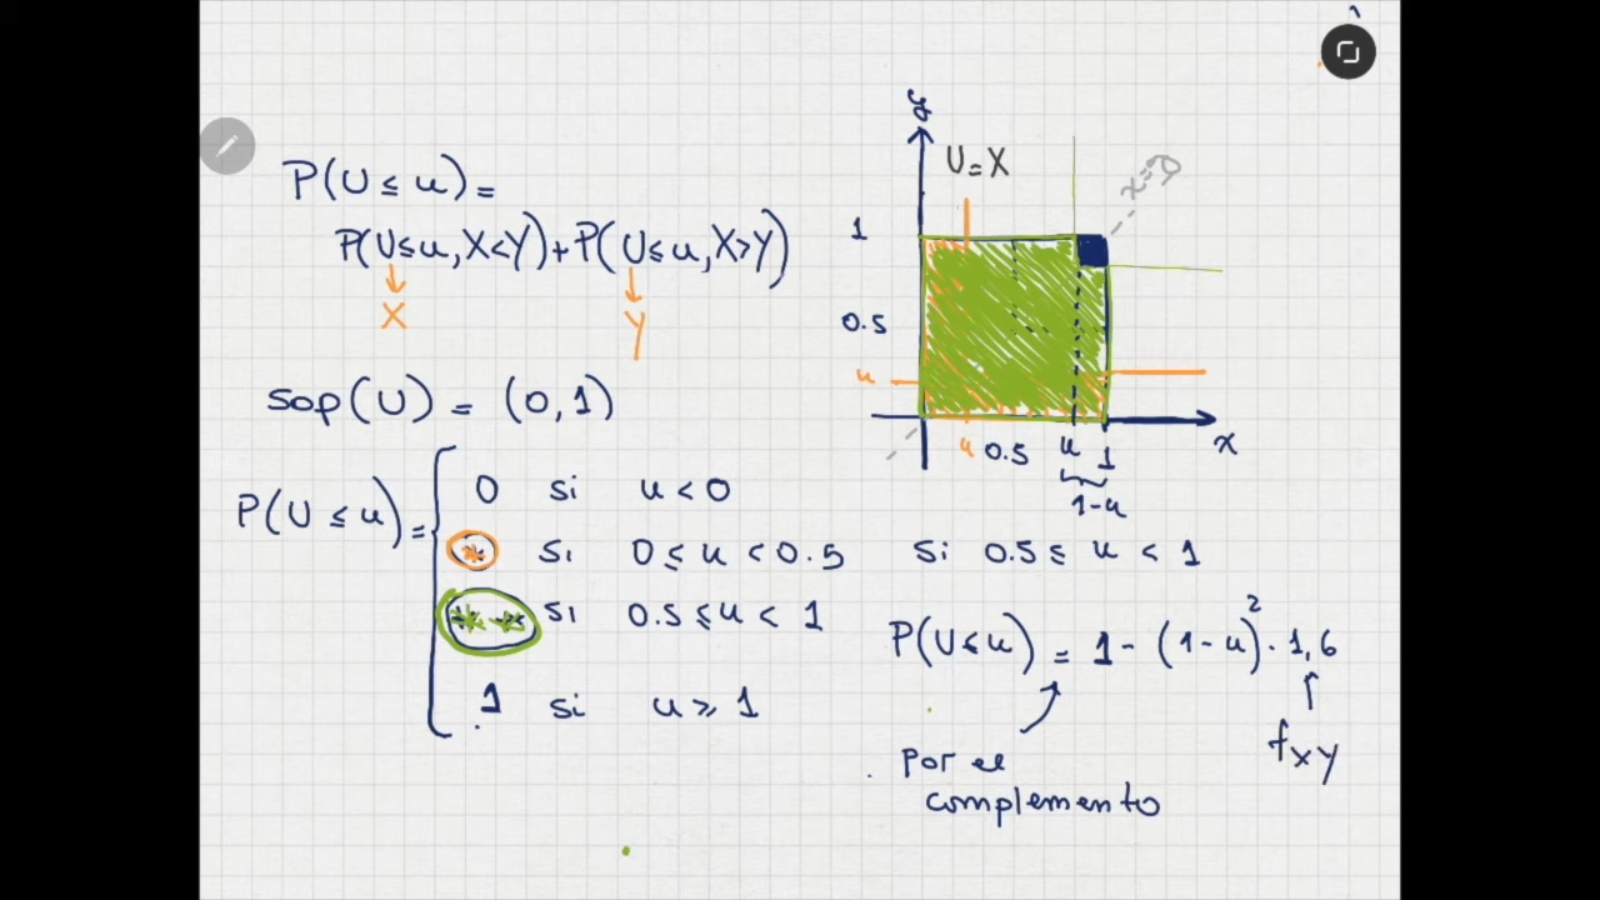 P(U ≤ u) =
P(U≤u, X<Y) + P(U≤u, X>Y)
X
Y
Sop(U) = (0,1)
P(U ≤ u) =
0 si u < 0
* si 0 ≤ u < 0.5
** si 0.5 ≤ u < 1
1 si u ≥ 1
y
U = X
x=y
1
0.5
u
u 0.5 u 1
x
1-u
si 0.5 ≤ u < 1
P(U≤u) = 1 - (1-u)² · 1,6
fxy
Por el
complemento